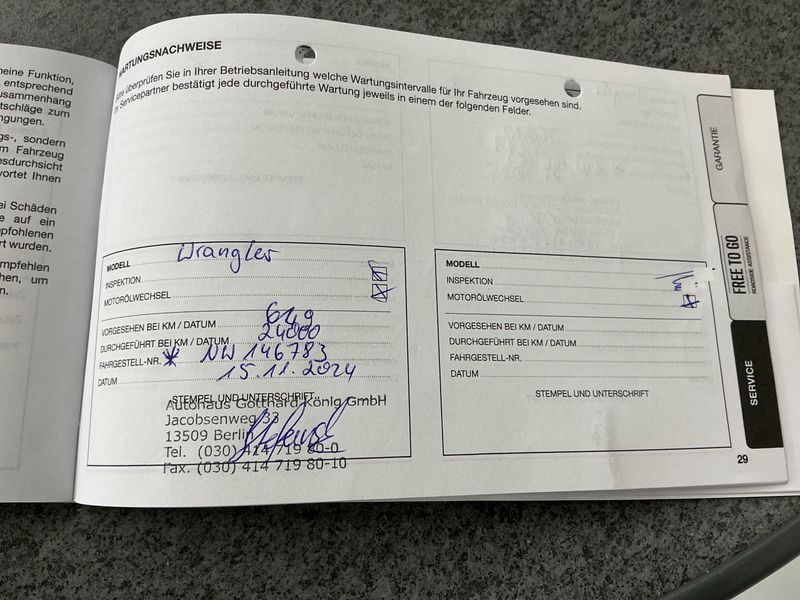 WARTUNGSNACHWEISE
Bitte überprüfen Sie in Ihrer Betriebsanleitung welche Wartungsintervalle für Ihr Fahrzeug vorgesehen sind.
Ihr Servicepartner bestätigt jede durchgeführte Wartung jeweils in einem der folgenden Felder.
eine Funktion,
entsprechend
usammenhang
tschläge zum
ngungen.
gs-, sondern
m Fahrzeug
esdurchsicht
vortet Ihnen
ei Schäden
e auf ein
mpfohlenen
rt wurden.
mpfehlen
hen, um
n.
MODELL Wrangler
INSPEKTION
MOTORÖLWECHSEL
VORGESEHEN BEI KM / DATUM
DURCHGEFÜHRT BEI KM / DATUM 24000
FAHRGESTELL-NR. * NW 146783
DATUM 15.11.2024
STEMPEL UND UNTERSCHRIFT
Autohaus Gotthard König GmbH
Jacobsenweg 33
13509 Berlin
Tel. (030) 414 719 80-0
Fax. (030) 414 719 80-10
MODELL
INSPEKTION
MOTORÖLWECHSEL
VORGESEHEN BEI KM / DATUM
DURCHGEFÜHRT BEI KM / DATUM
FAHRGESTELL-NR.
DATUM
STEMPEL UND UNTERSCHRIFT
GARANTIE
FREE TO GO
ROADSIDE ASSISTANCE
SERVICE
29